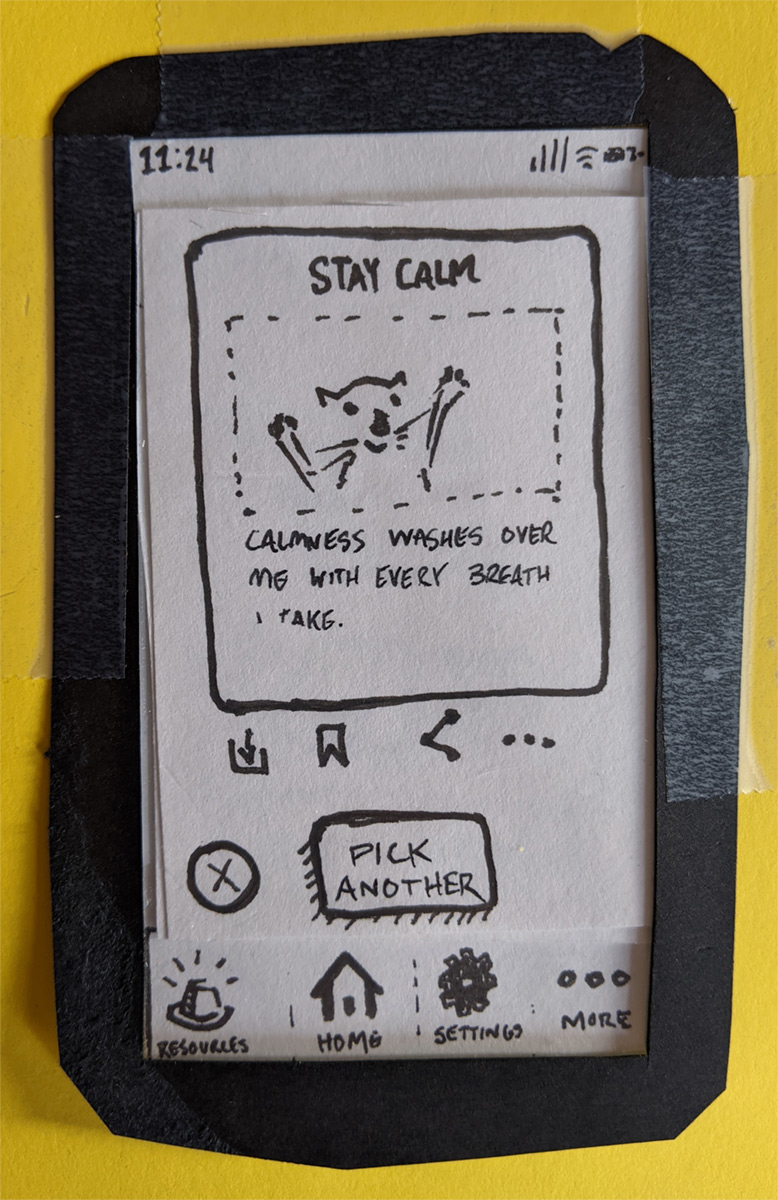 11:24
STAY CALM
CALMNESS WASHES OVER
ME WITH EVERY BREATH
I TAKE.
X
PICK
ANOTHER
RESOURCES
HOME
SETTINGS
MORE